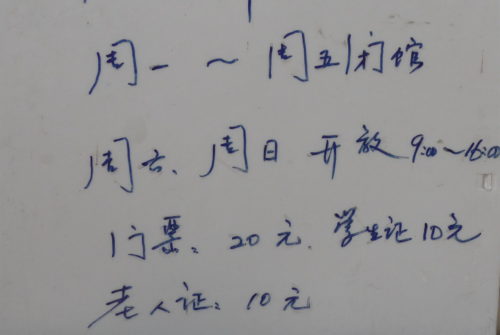 周一～周五闭馆
周六、周日开放9:00～16:00
门票：20元．学生证10元
老人证：10元